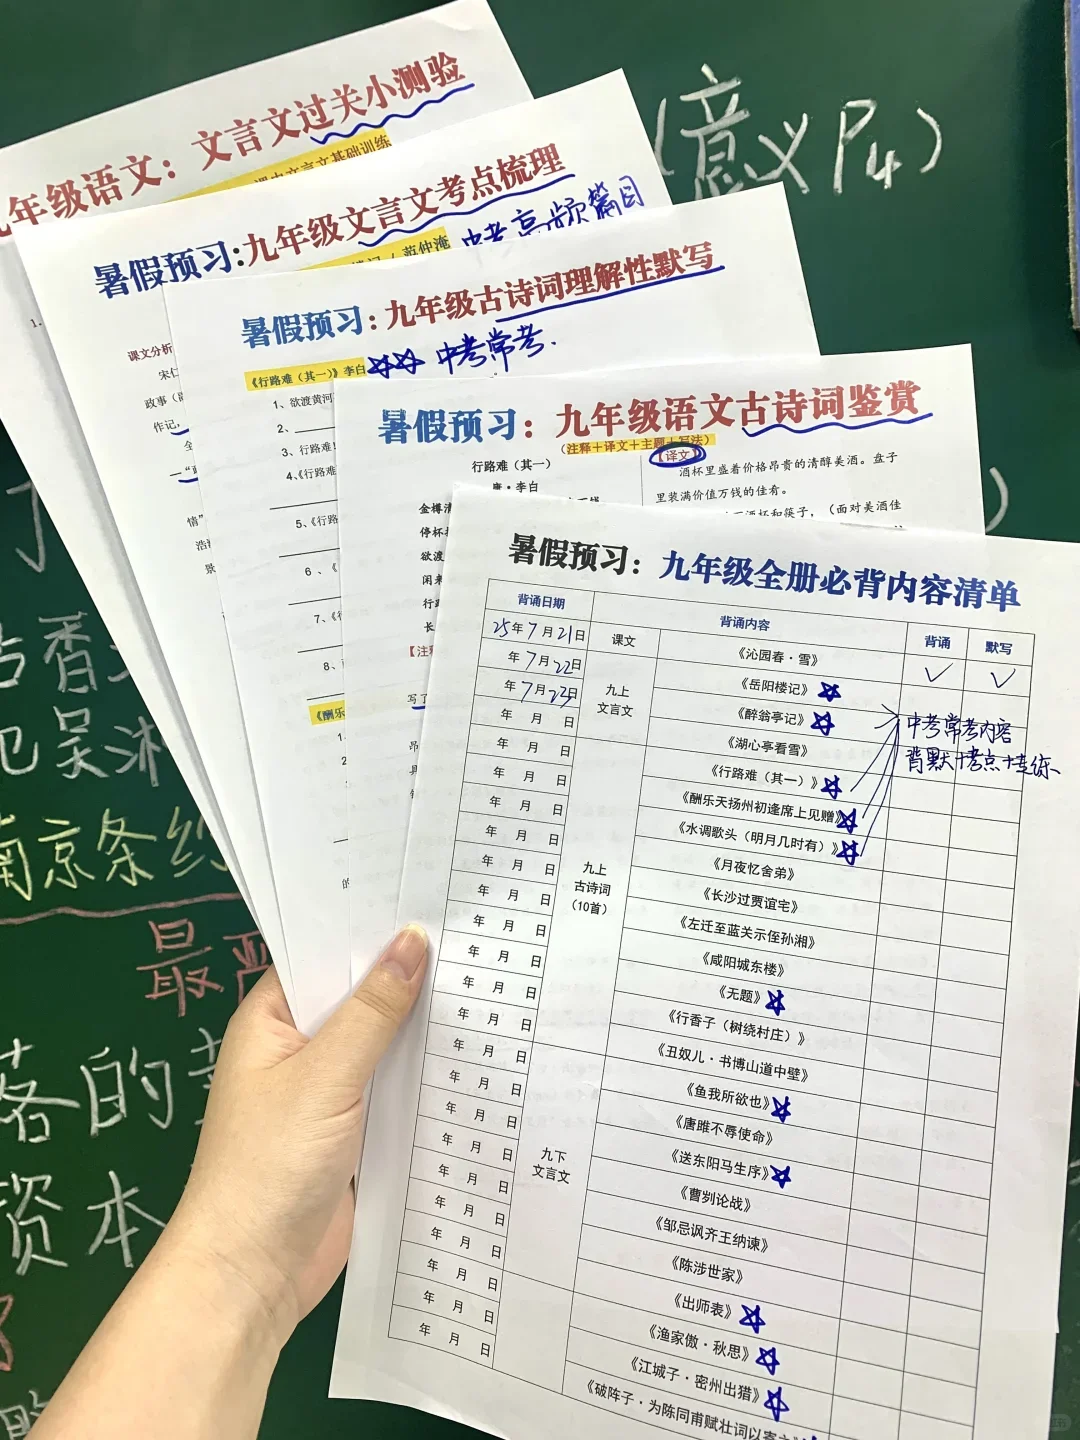 (意义P4)
九年级语文：文言文过关小测验
课内文言文基础训练
暑假预习:九年级文言文考点梳理
中考高频篇目
范仲淹
1.
课文分析
宋仁
政事
作记，
全
情”
暑假预习：九年级古诗词理解性默写
《行路难（其一）》李白 ☆☆ 中考常考.
1、欲渡黄河
2、
3、行路难！
4、《行路难
5、《行路
6、《
7、《行
8、
《酬乐
1.
2
暑假预习：九年级语文古诗词鉴赏
（注释＋译文＋主题＋写法）
行路难（其一）
唐·李白
金樽清
停杯投
欲渡
闲来
行路
长
【注释
写了
【译文】
酒杯里盛着价格昂贵的清醇美酒。盘子
里装满价值万钱的佳肴。
酒杯和筷子，（面对美酒佳
暑假预习：九年级全册必背内容清单
背诵日期 背诵内容 背诵 默写
课文
25年7月21日 《沁园春·雪》 ✓ ✓
年7月22日 九上 文言文 《岳阳楼记》☆
年7月23日 《醉翁亭记》☆
年 月 日 《湖心亭看雪》
中考常考内容
背默+考点+连练
年 月 日 九上 古诗词 （10首） 《行路难（其一）》☆
年 月 日 《酬乐天扬州初逢席上见赠》☆
年 月 日 《水调歌头（明月几时有）》☆
年 月 日 《月夜忆舍弟》
年 月 日 《长沙过贾谊宅》
年 月 日 《左迁至蓝关示侄孙湘》
年 月 日 《咸阳城东楼》
年 月 日 《无题》☆
年 月 日 《行香子（树绕村庄）》
年 月 日 《丑奴儿·书博山道中壁》
年 月 日 九下 文言文 《鱼我所欲也》☆
年 月 日 《唐雎不辱使命》
年 月 日 《送东阳马生序》☆
年 月 日 《曹刿论战》
年 月 日 《邹忌讽齐王纳谏》
年 月 日 《陈涉世家》
年 月 日 《出师表》☆
年 月 日 《渔家傲·秋思》☆
年 月 日 《江城子·密州出猎》☆
《破阵子·为陈同甫赋壮词以寄
吴淞
南京条约
最严
落的
资本